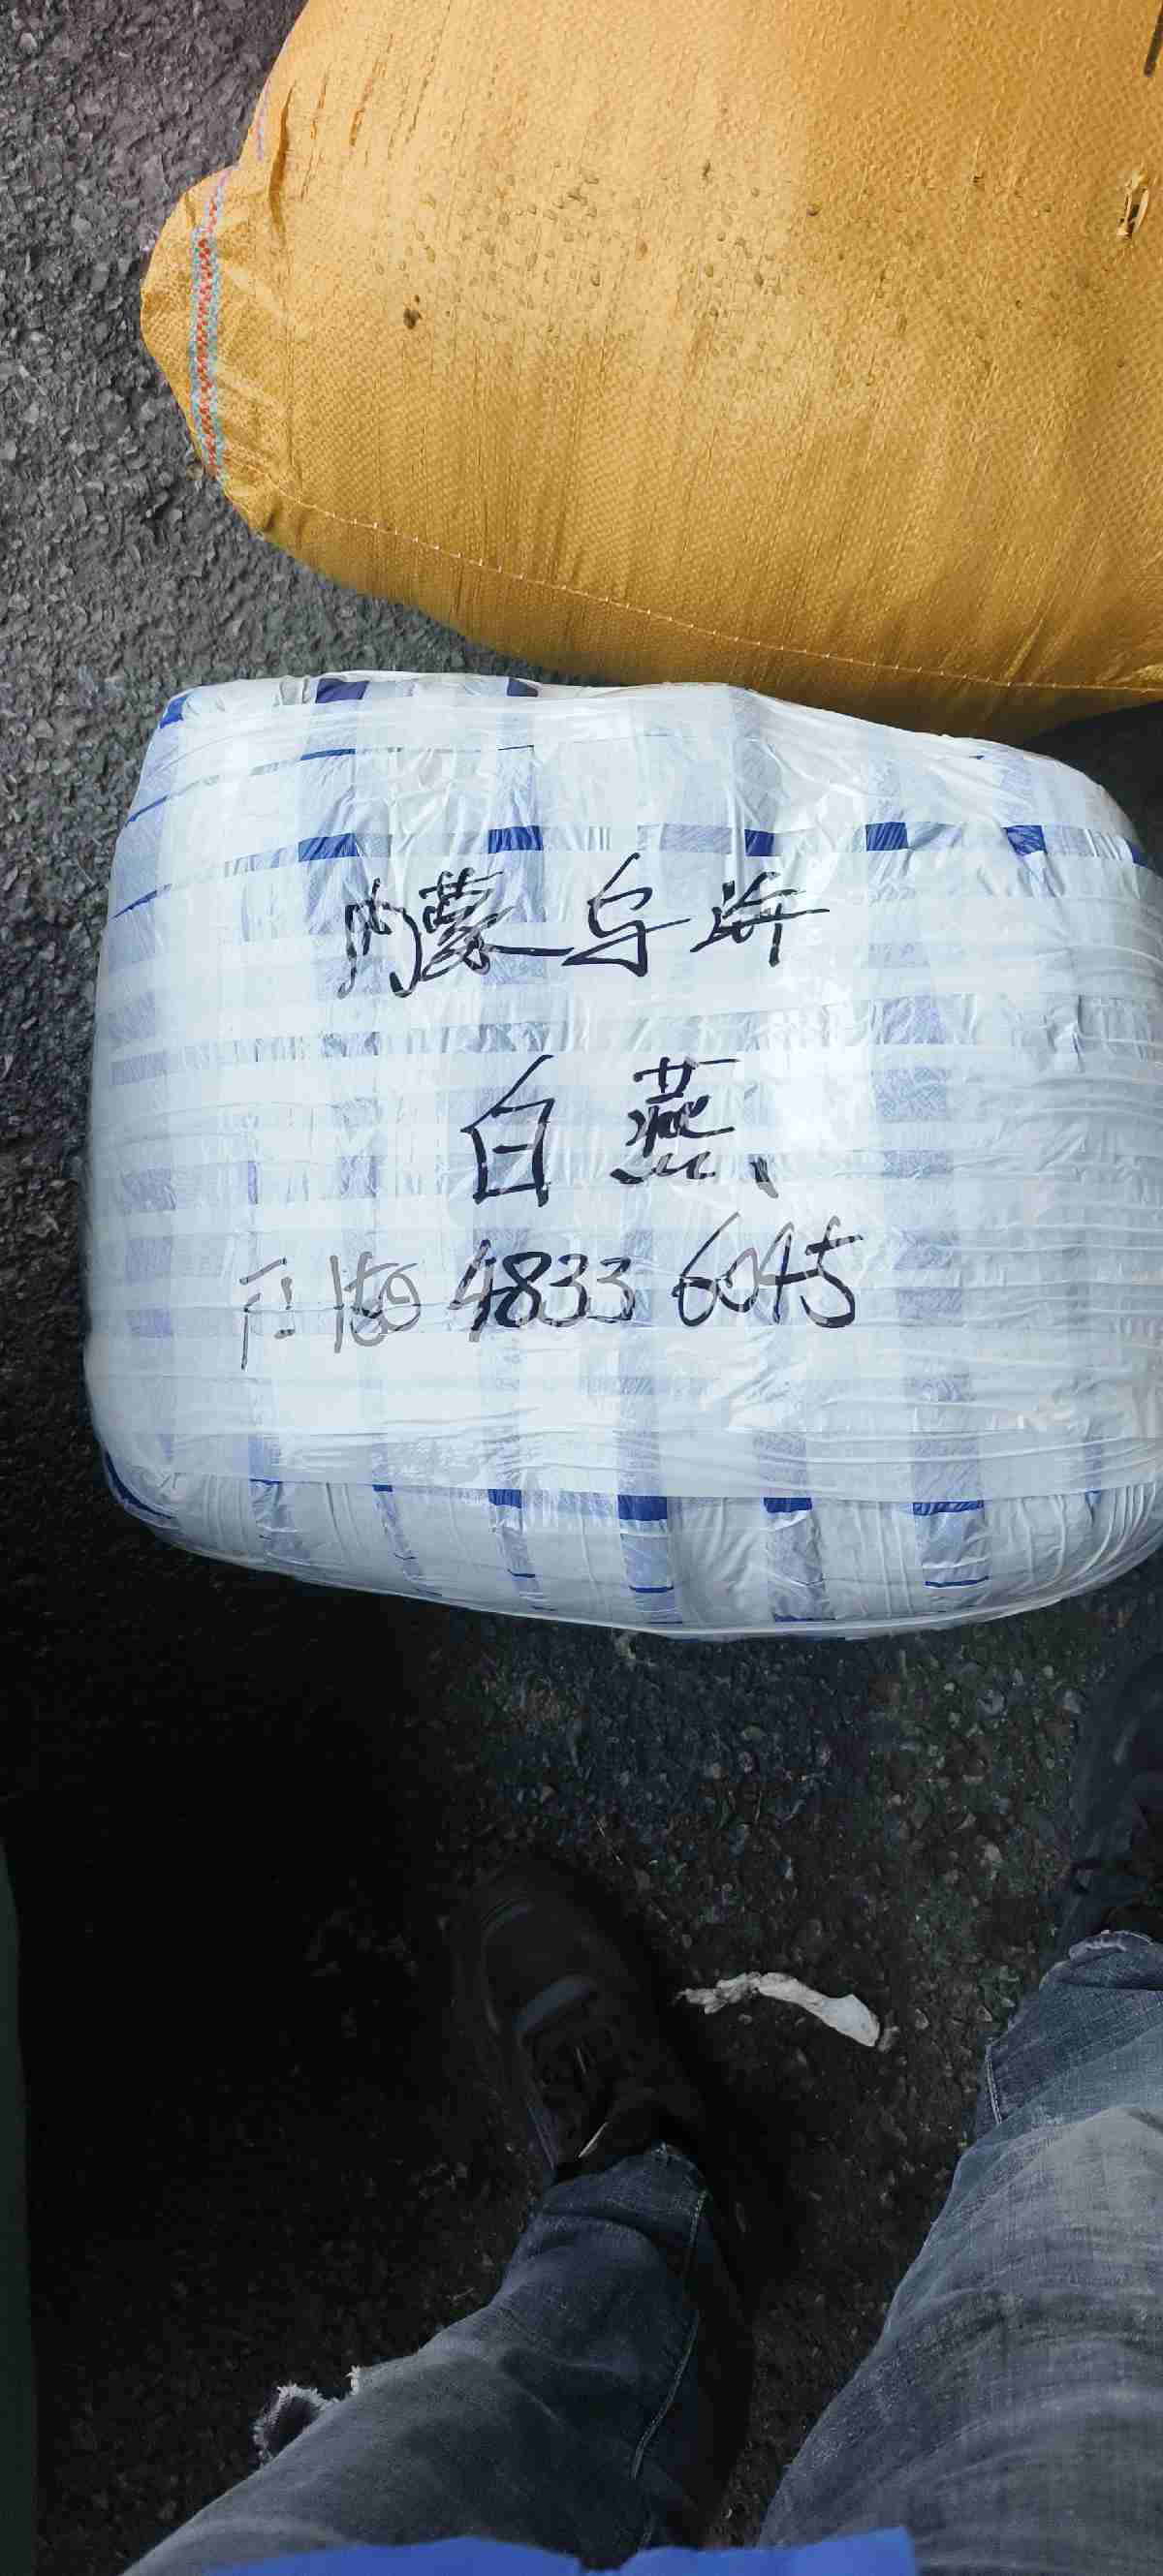 内蒙乌海
白燕
150 4833 6045